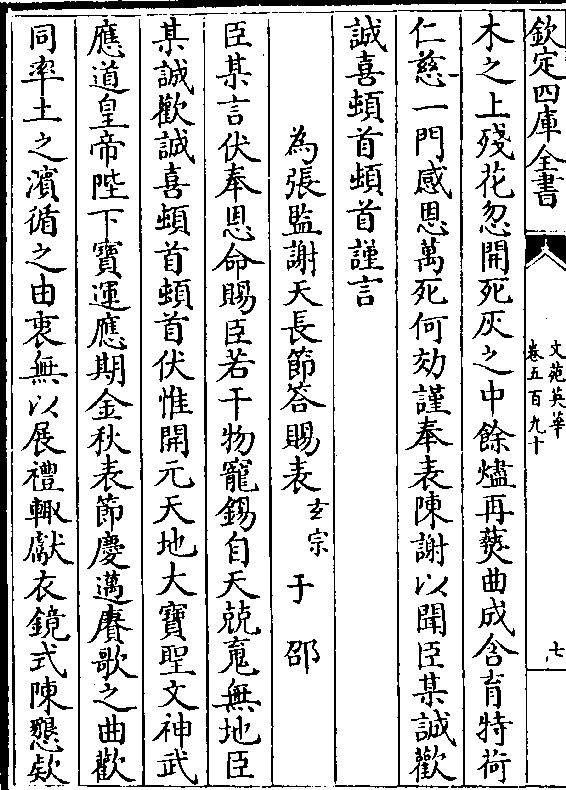 欽定四庫全書
文苑英華
卷五百九十
七
木之上殘花忽開死灰之中餘燼再爇曲成含育特荷
仁慈一門感恩萬死何効謹奉表陳謝以聞臣某誠歡
誠喜頓首頓首謹言
為張監謝天長節答賜表玄宗 于邵
臣某言伏奉恩命賜臣若干物寵錫自天兢䰟無地臣
某誠歡誠喜頓首頓首伏惟開元天地大寶聖文神武
應道皇帝陛下寶運應期金秋表節慶邁賡歌之曲歡
同率土之濱循之由衷無以展禮輙獻衣鏡式陳懇欵